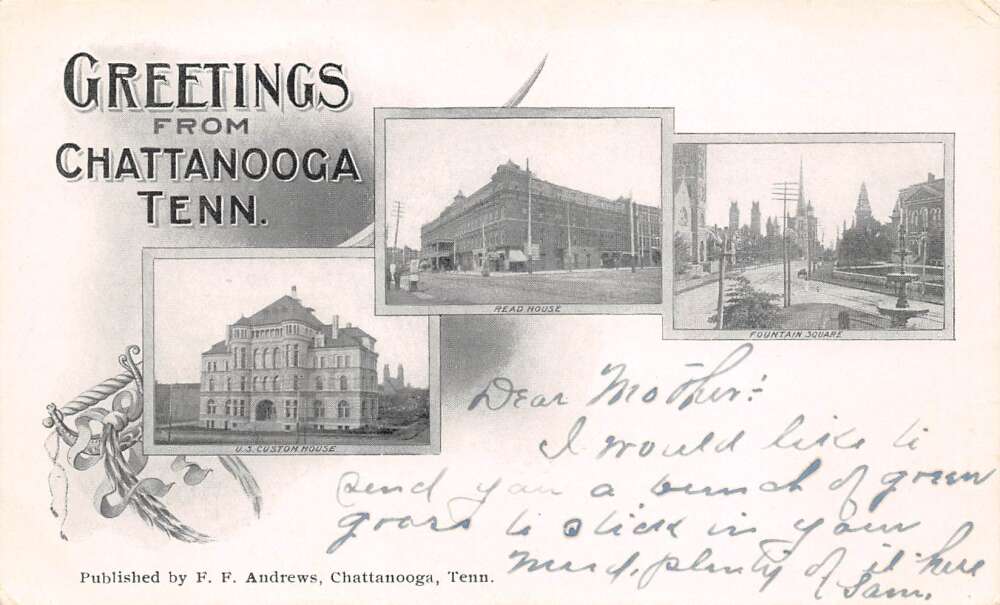 GREETINGS
FROM
CHATTANOOGA
TENN.
READ HOUSE
FOUNTAIN SQUARE
U.S. CUSTOM HOUSE
Dear Mother:
I would like to
send you a bunch of green
to stick in your
plenty of it here
Sam.
Published by F. F. Andrews, Chattanooga, Tenn.